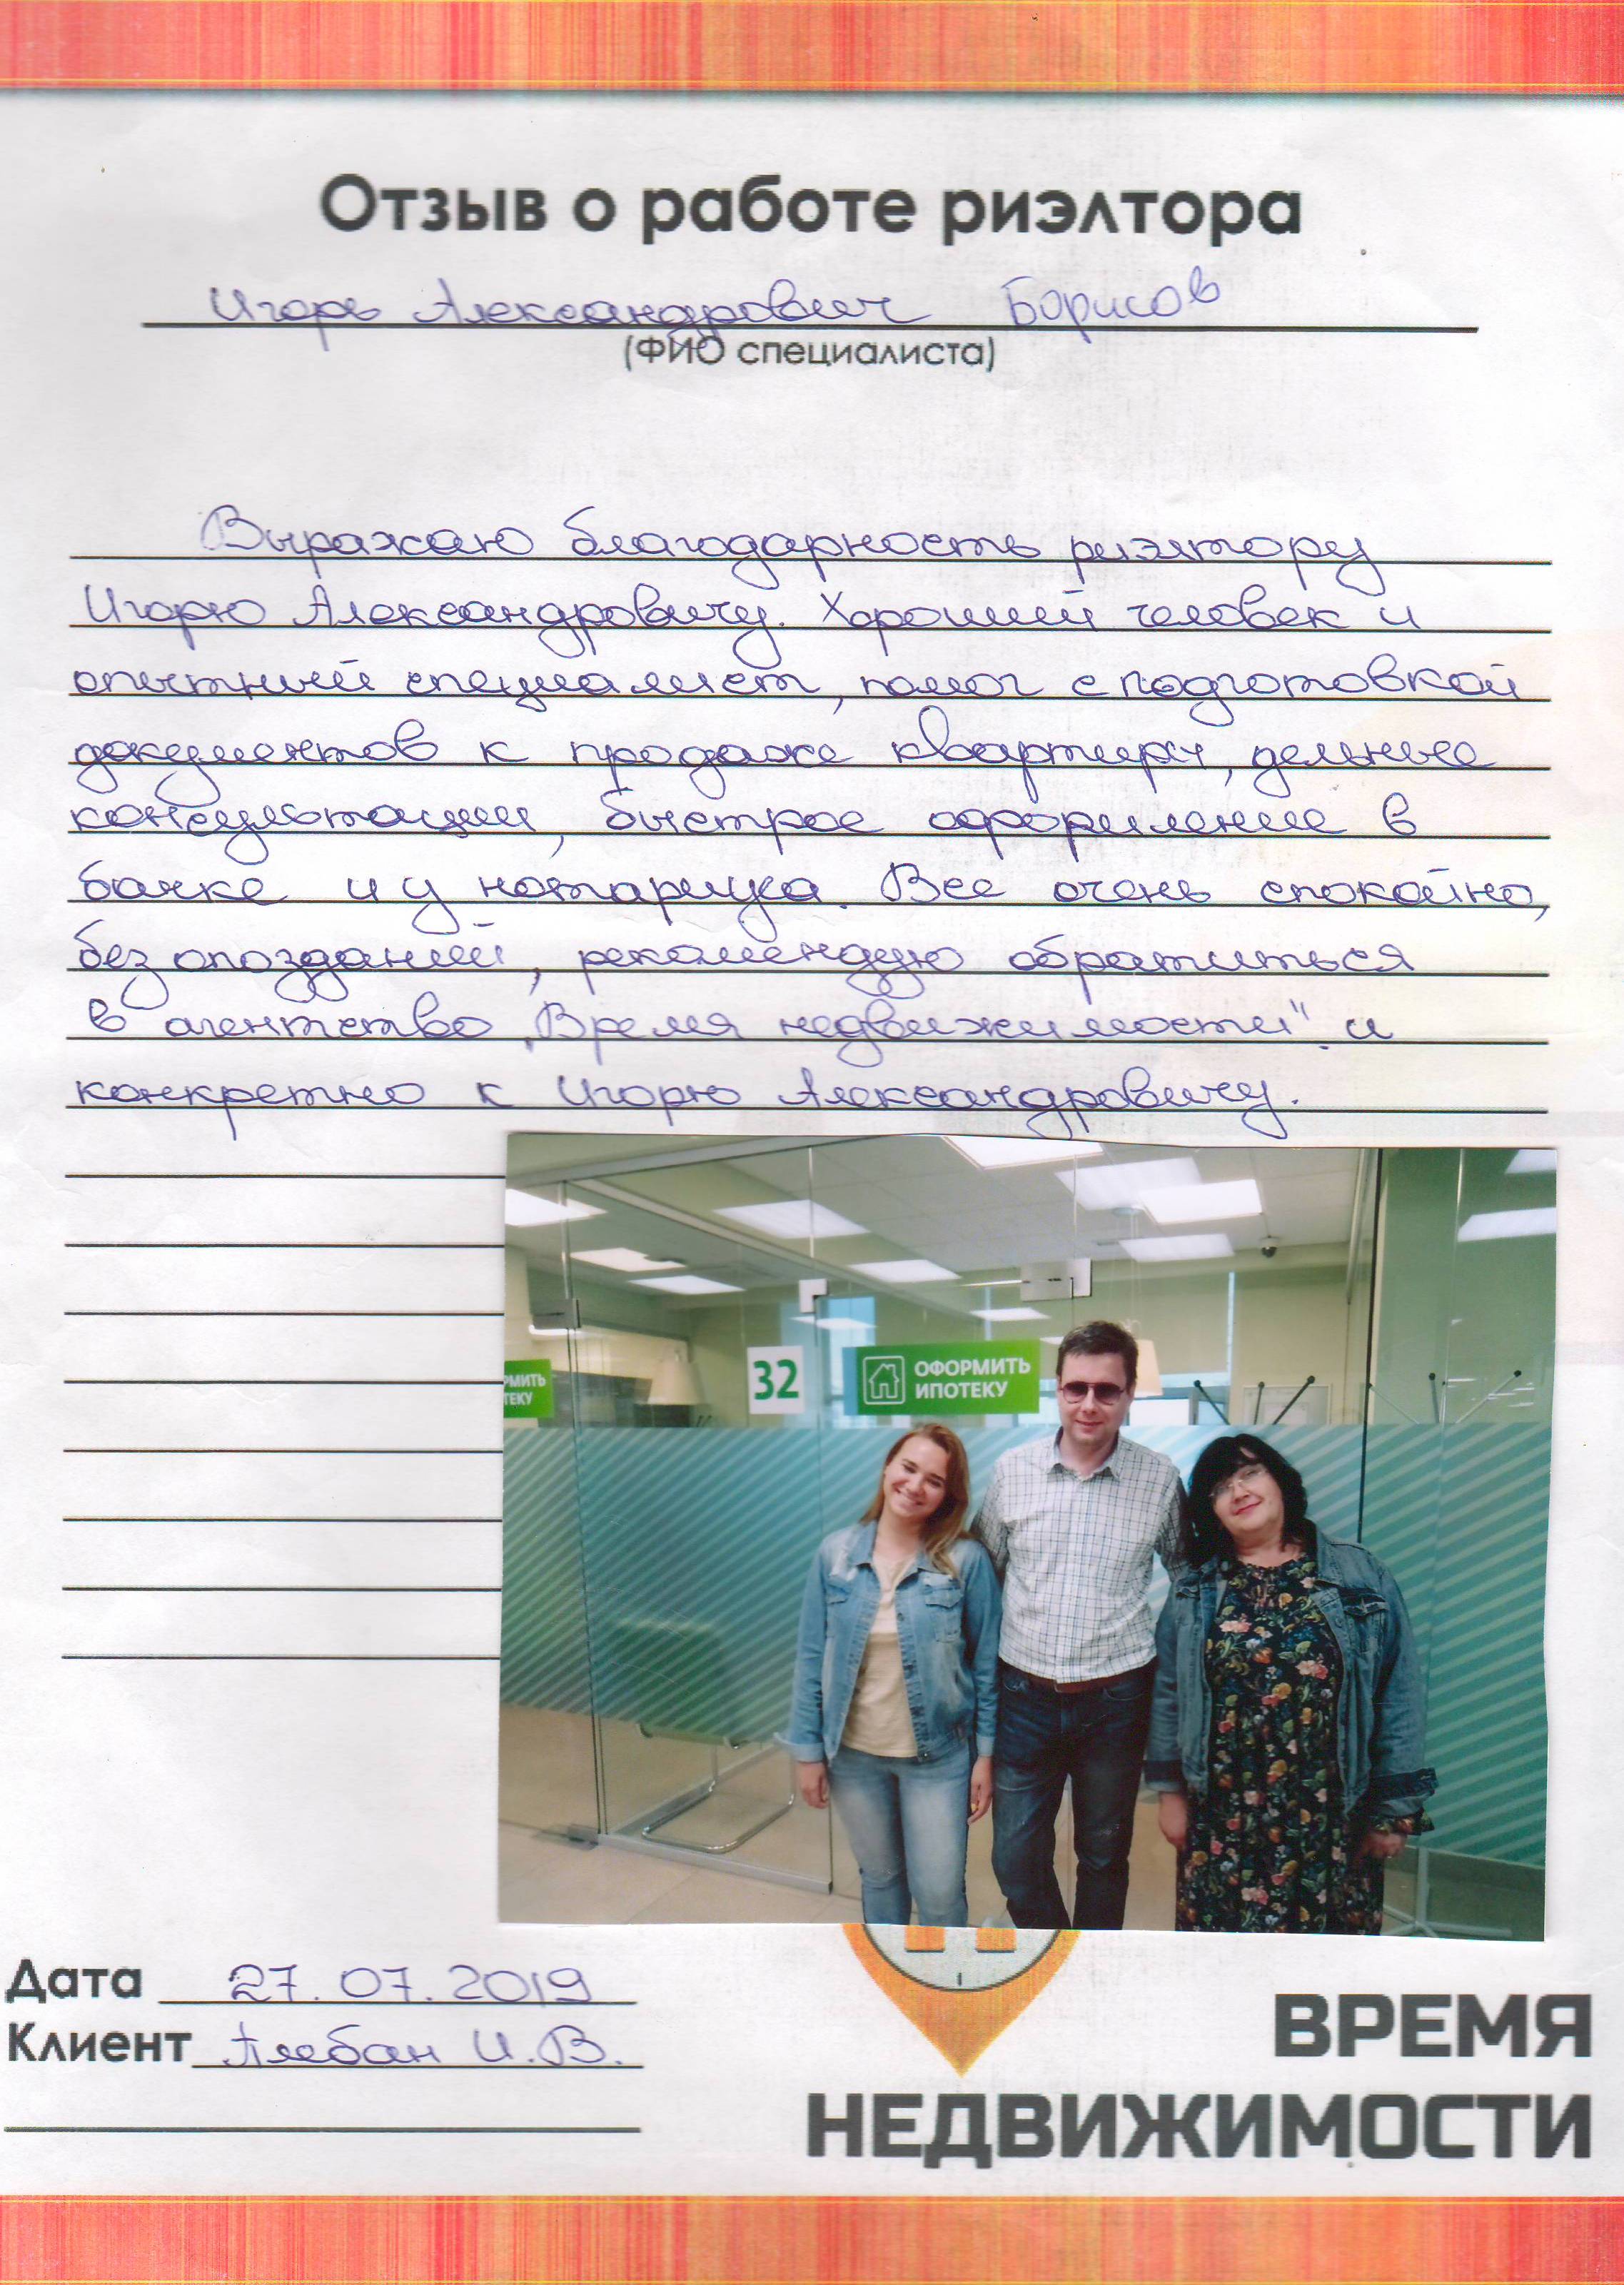 Отзыв о работе риэлтора
Игорь Александрович Борисов
(ФИО специалиста)
Выражаю благодарность риэлтору
Игорю Александровичу. Хороший человек и
опытный специалист, помог с подготовкой
документов к продаже квартиры, дельные
консультации, быстрое оформление в
банке и у нотариуса. Все очень спокойно,
без опозданий, рекомендую обратиться
в агентство „Время недвижимости" и
конкретно к Игорю Александровичу.
РМИТЬ
ТЕКУ
32
ОФОРМИТЬ
ИПОТЕКУ
Дата 27.07.2019
Клиент И.В.
ВРЕМЯ
НЕДВИЖИМОСТИ